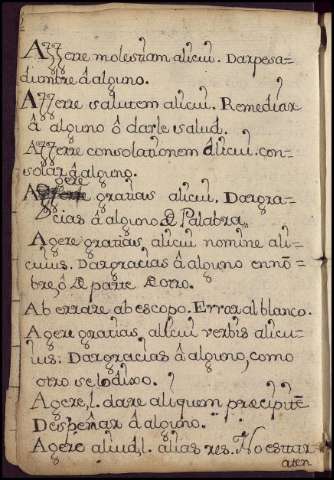 Afferre molestiam alicui. Dar pesa=
dumbre â alguno.
Afferre salutem alicui. Remediar
â alguno ô darle salud.
Afferre consolationem alicui. con=
solar â alguno.
Agere gratias alicui. Dar gra=
cias â alguno De Palabra.
Agere gratias alicui nomine ali=
cuius. Dar gracias â alguno en nõ=
bre, ô De parte De otro.
Ab errare ab escopo. Errar al blanco.
Agere gratias alicui verbis alicu=
ius. Dar gracias â alguno, como
otro se lo dixo.
Agere, l. dare aliquem precipitẽ
Despeñar â alguno.
Agere aliud, l. alias res. No estar
aten